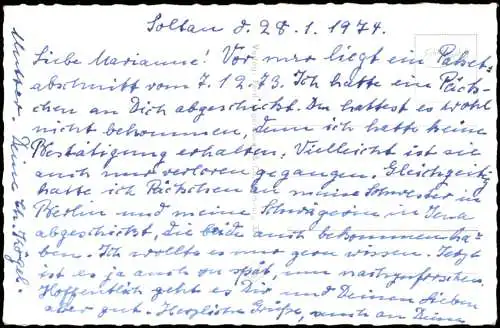 Soltau d. 28.1.1974.
Liebe Marianne! Vor mir liegt ein Paket-
abschnitt vom 7.12.73. Ich hatte ein Päck-
chen an Dich abgeschickt. Du hattest es wohl
nicht bekommen, denn ich hatte keine
Bestätigung erhalten. Vielleicht ist sie
auch nur verloren gegangen. Gleichzeitig
hatte ich Päckchen an meine Schwester in
Berlin und meine Schwägerin in Jena
abgeschickt, die beide auch bekommen ha-
ben. Ich wollte es nur gern wissen. Jetzt
ist es ja auch zu spät, um nachzuforschen.
Hoffentlich geht es Dir und Deinen Lieben
aber gut. Herzliche Grüße, auch an Deine
Mutter. Deine Ch.